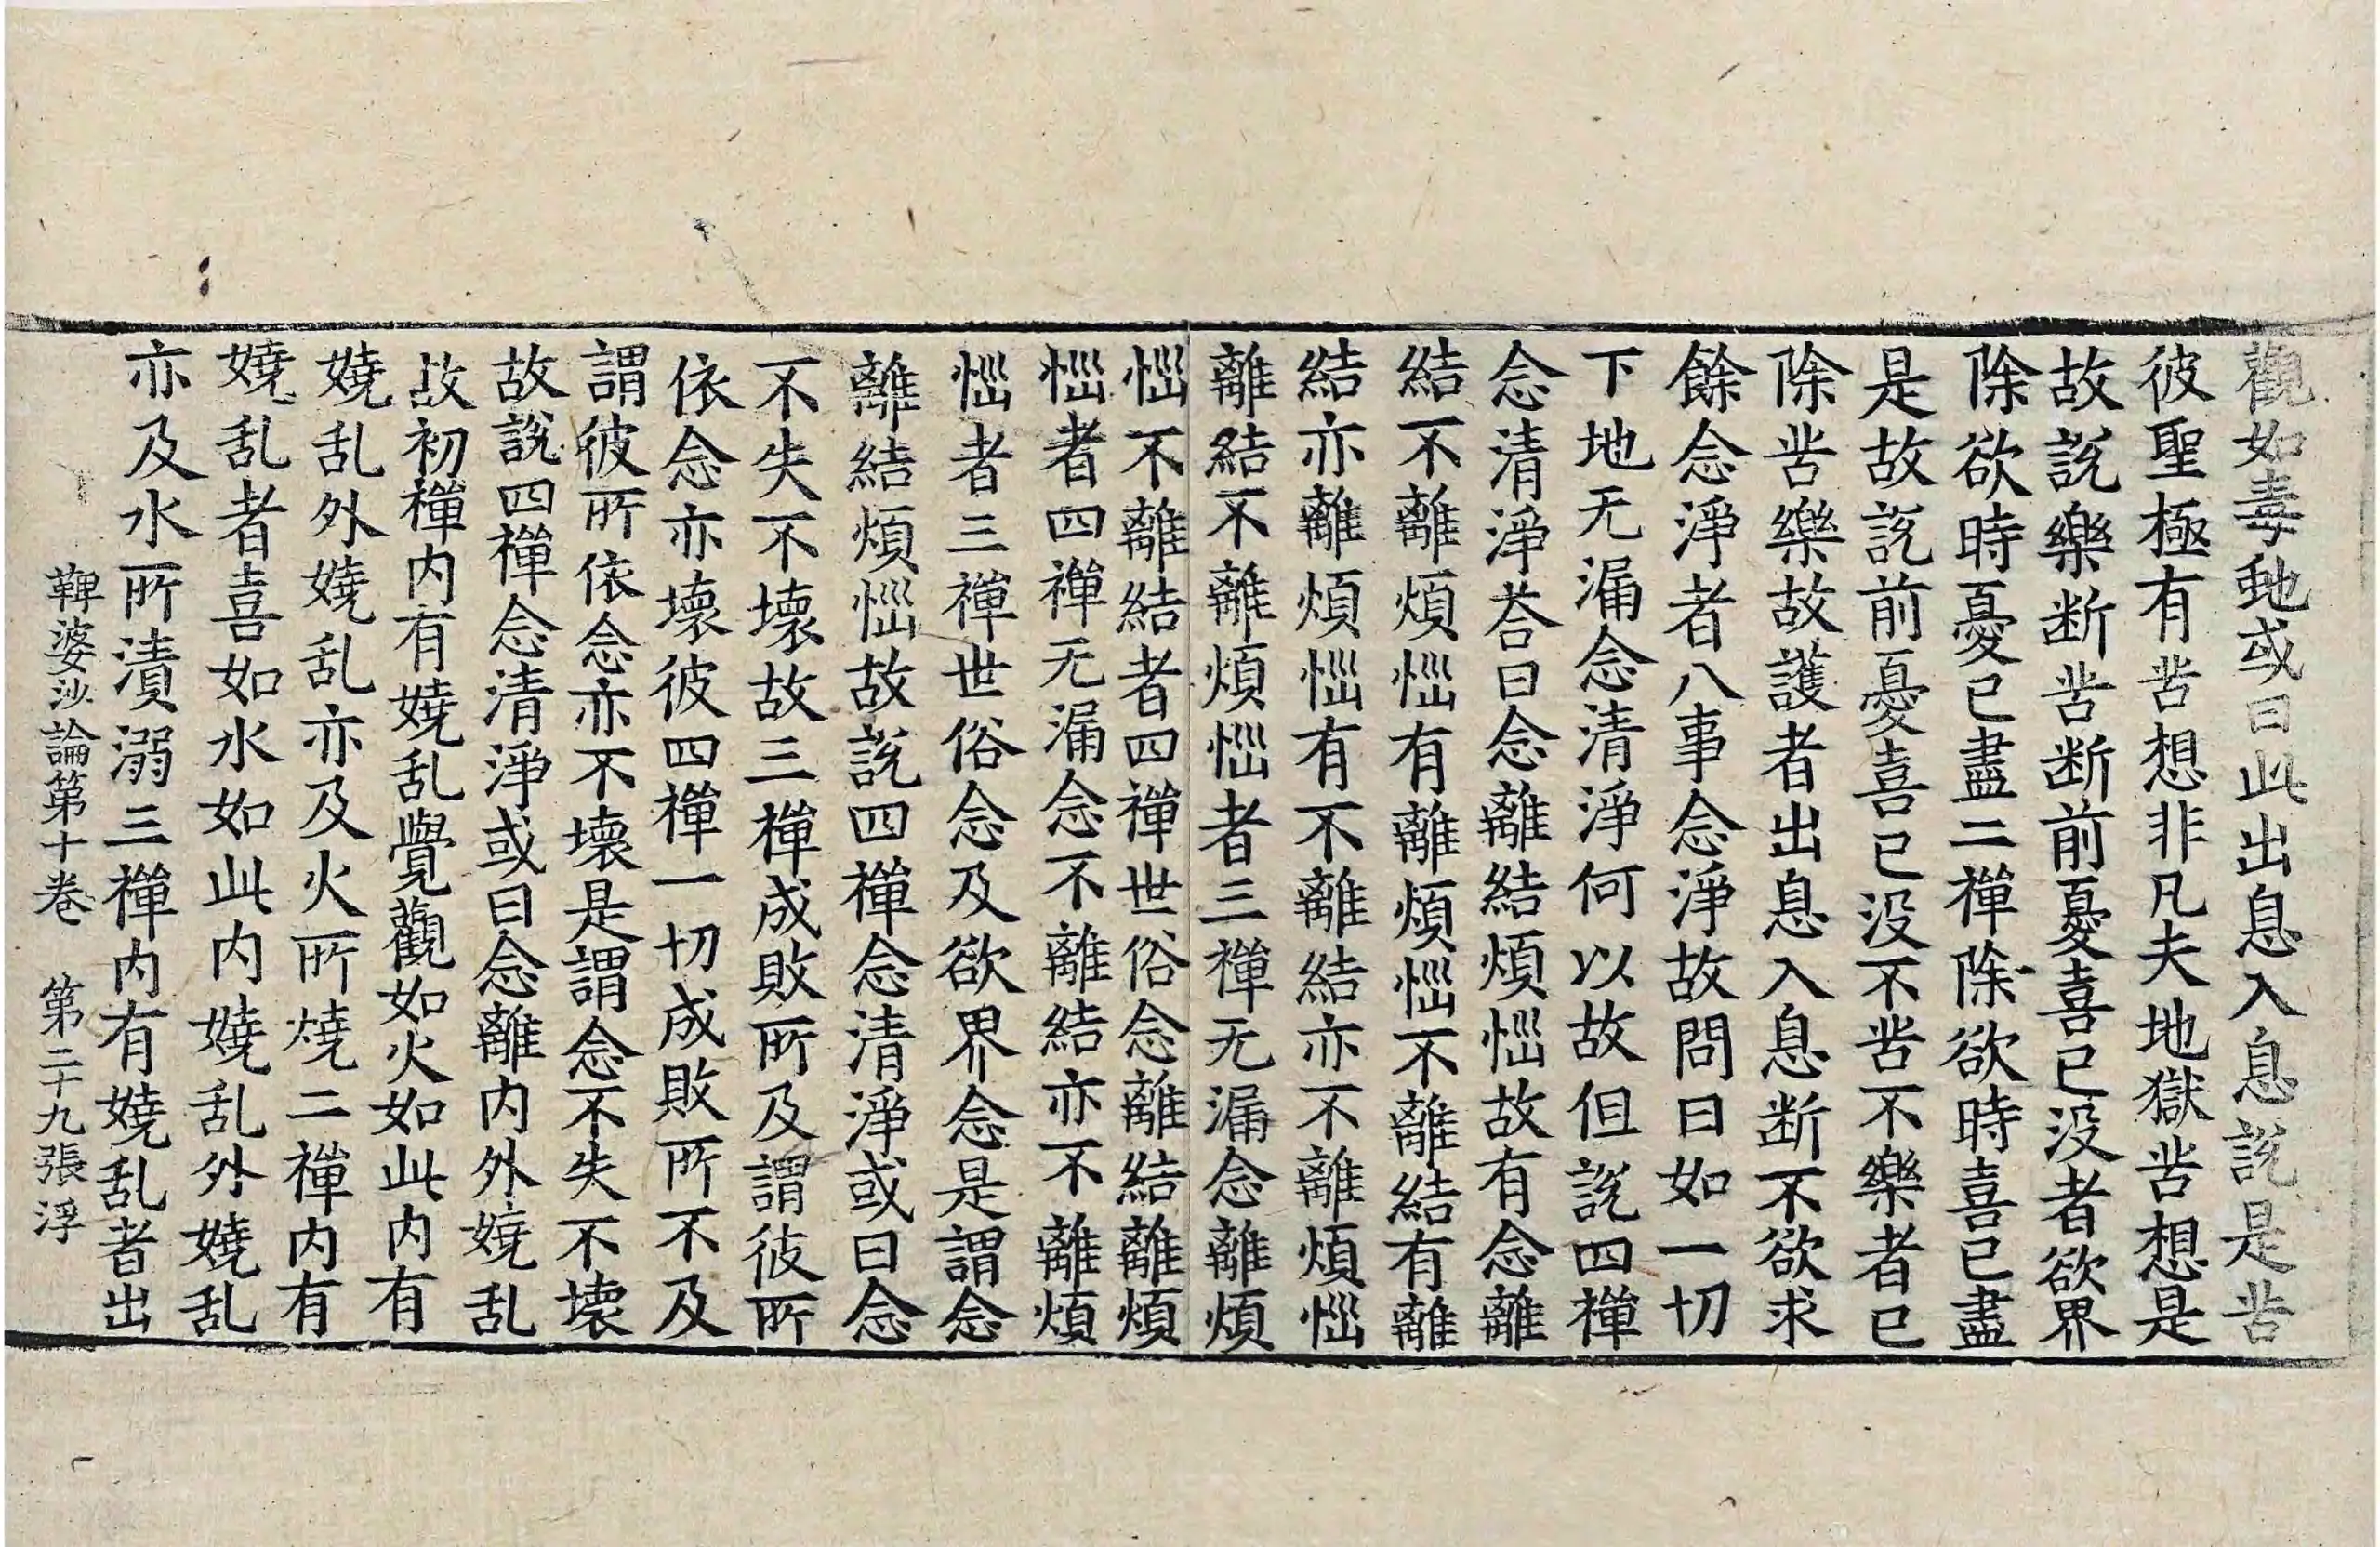 觀如毒虵或曰此出息入息說是苦
彼聖極有苦想非凡夫地獄苦想是
故說樂断苦断前憂喜已没者欲界
除欲時憂已盡二禪除欲時喜已盡
是故說前憂喜已没不苦不樂者已
除苦樂故護者出息入息断不欲求
餘念淨者八事念淨故問曰如一切
下地无漏念清淨何以故但說四禪
念清淨荅曰念離結煩惱故有念離
結不離煩惱有離煩惱不離結有離
結亦離煩惱有不離結亦不離煩惱
離結不離煩惱者三禪无漏念離煩
惱不離結者四禪世俗念離結離煩
惱者四禪无漏念不離結亦不離煩
惱者三禪世俗念及欲界念是謂念
離結煩惱故說四禪念清淨或曰念
不失不壞故三禪成敗所及謂彼所
依念亦壞彼四禪一切成敗所不及
謂彼所依念亦不壞是謂念不失不壞
故說四禪念清淨或曰念離内外嬈乱
故初禪内有嬈乱覺觀如火如此内有
嬈乱外嬈乱亦及火所燒二禪内有
嬈乱者喜如水如此内嬈乱外嬈乱
亦及水所漬溺三禪内有嬈乱者出
鞞婆沙論第十卷　第二十九張　浮